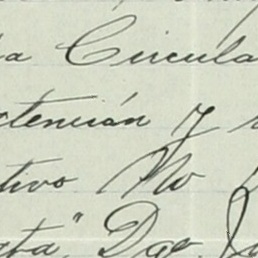 a Circula
xtensión y
tivo No
ta", Dgo. Ju